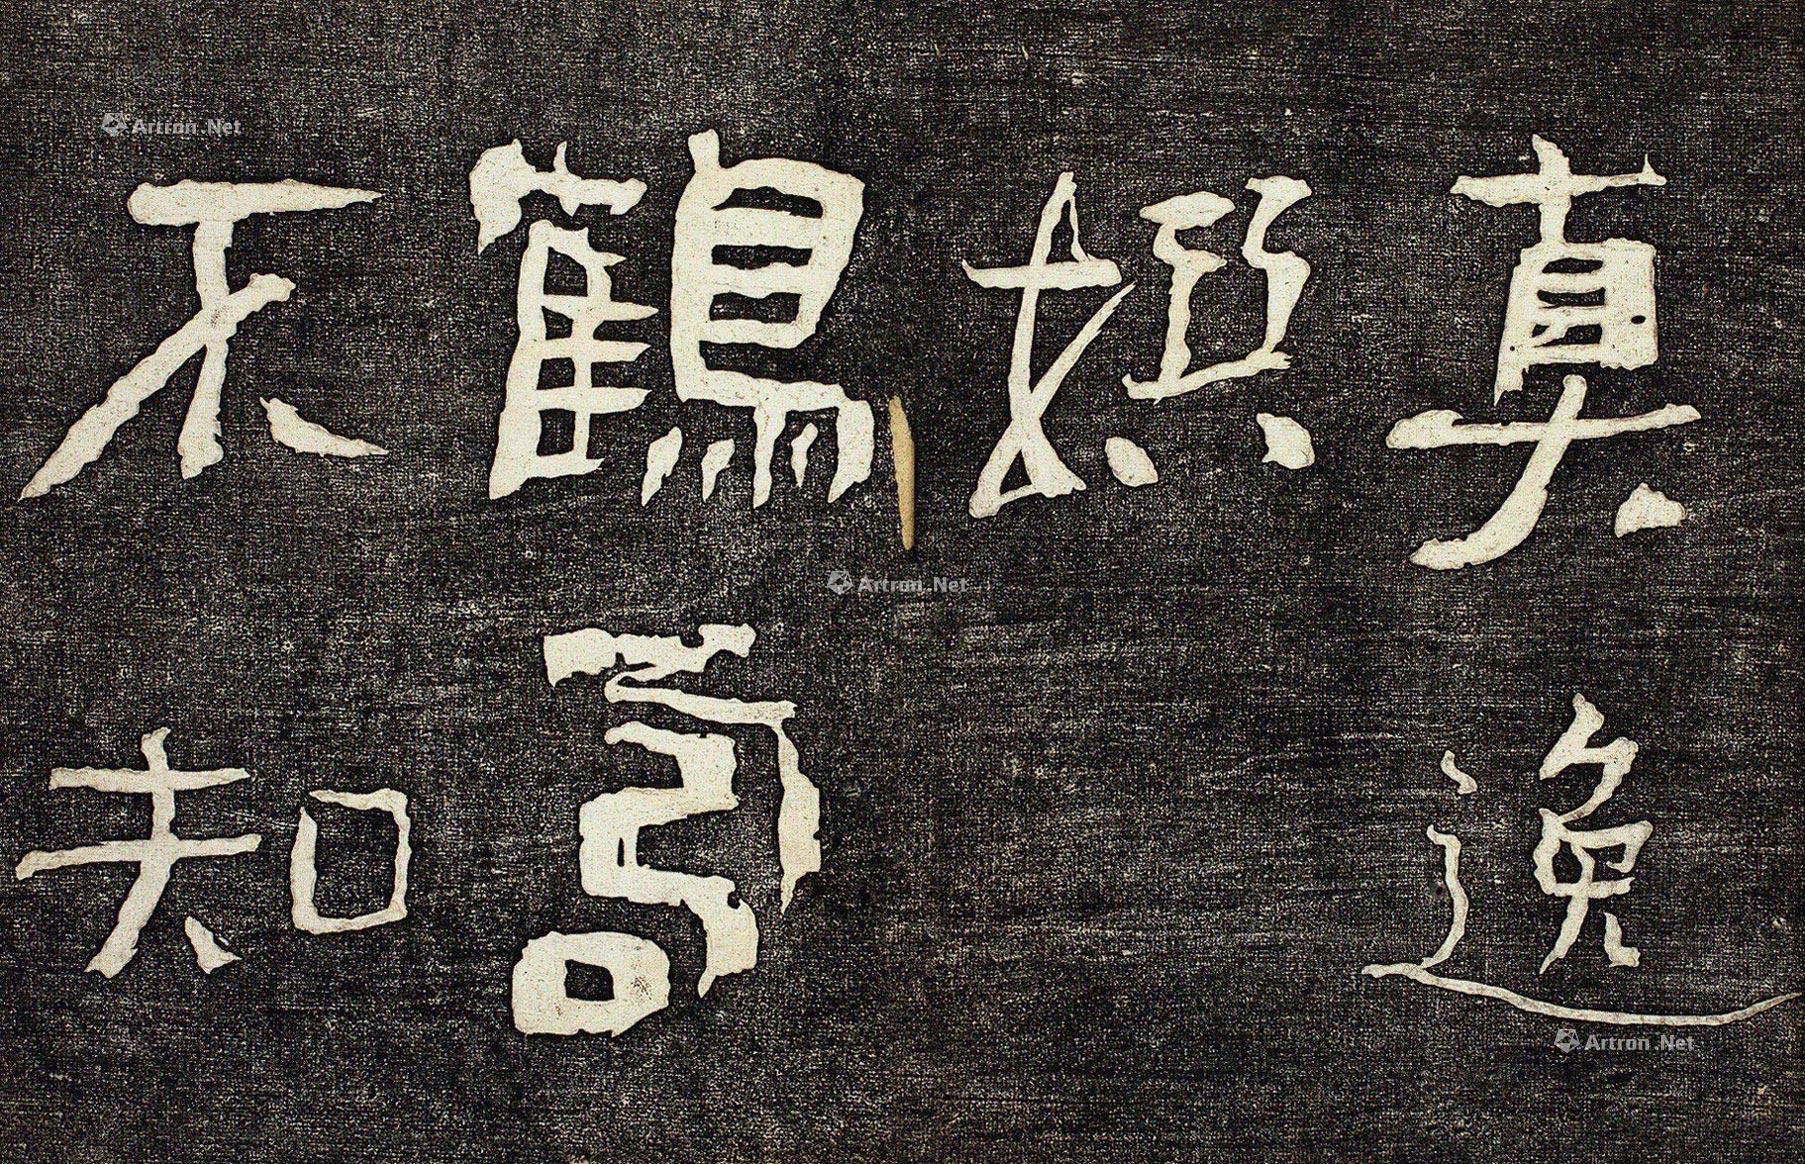 真逸
撰
鶴壽
不知
Artron.Net
Artron.Net
Artron.Net